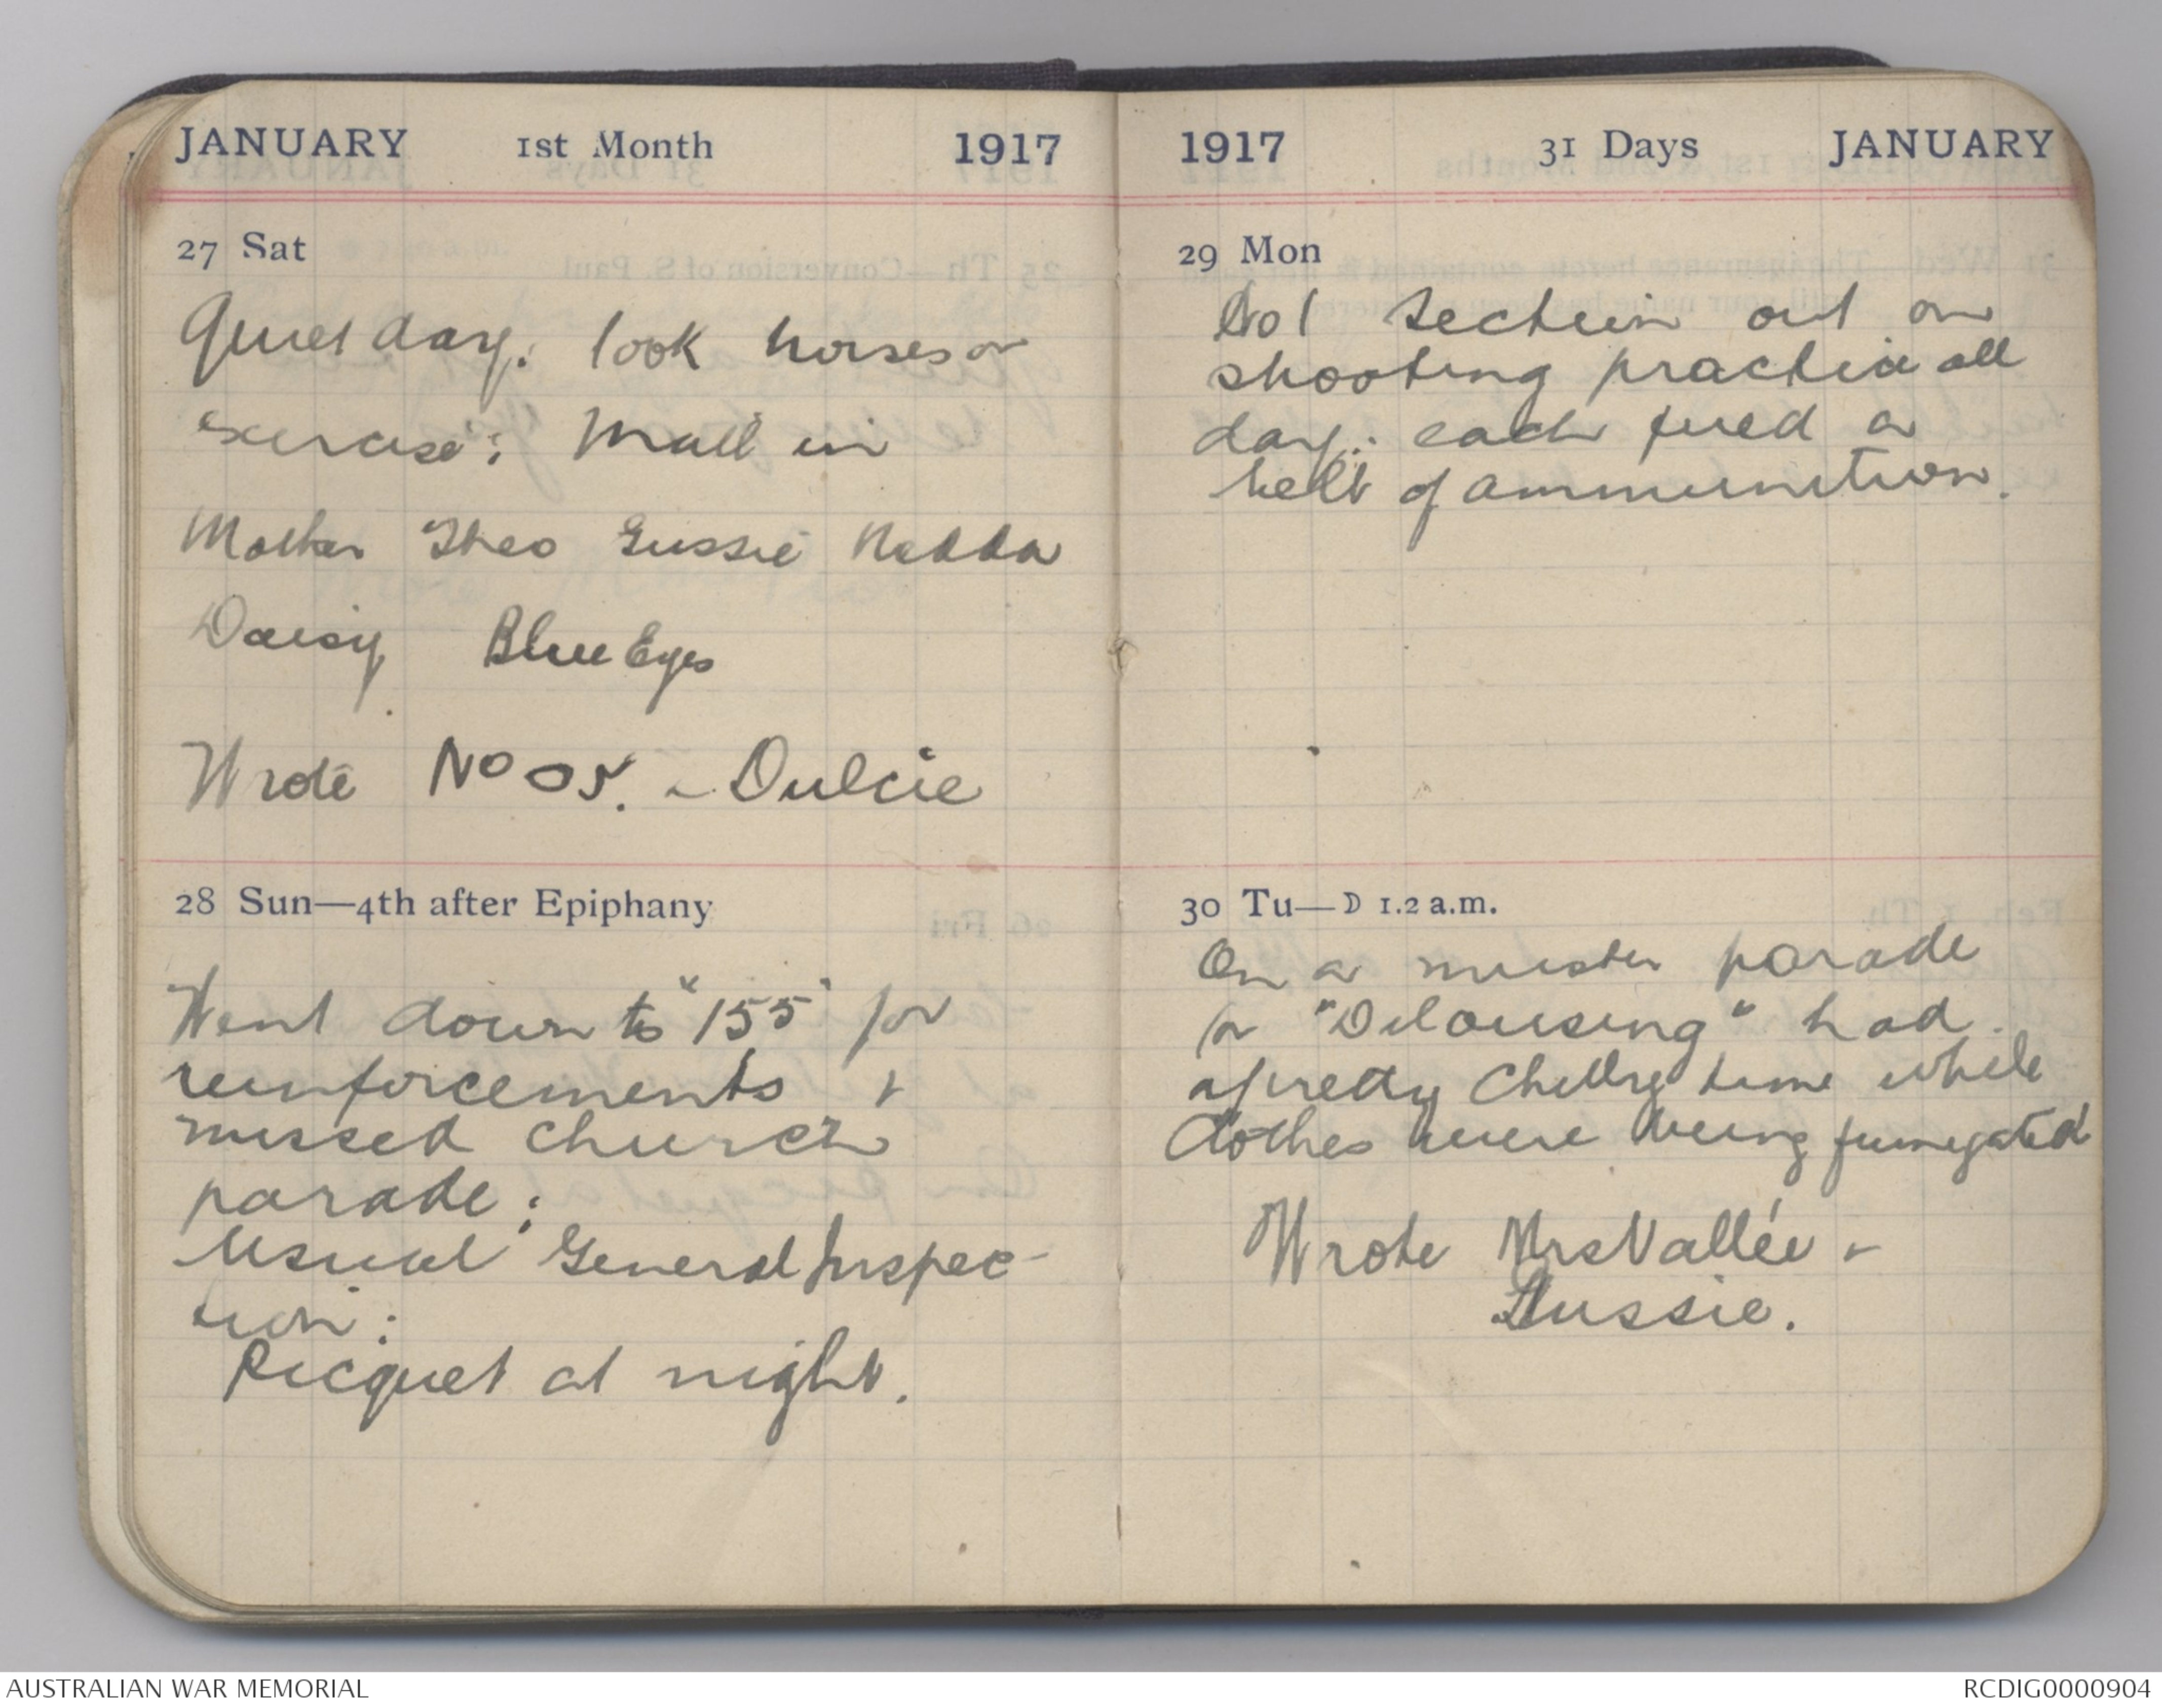 JANUARY 1st Month 1917
27 Sat
Quiet day: took horses on
exercise: Mail in
Mother Theo Gussie Nedda
Daisy Blue Eyes
Wrote No 05. - Dulcie
28 Sun—4th after Epiphany
Went down to "155" for
reinforcements +
missed church
parade:
Usual General Inspec-
tion:
Picquet at night.
1917 31 Days JANUARY
29 Mon
No 1 Section out on
shooting practice all
day: each fired a
belt of ammunition.
30 Tu—D 1.2 a.m.
On a muster parade
for "Delousing" had
a pretty chilly time while
clothes were being fumigated
Wrote Mrs Vallée +
Gussie.
AUSTRALIAN WAR MEMORIAL
RCDIG0000904